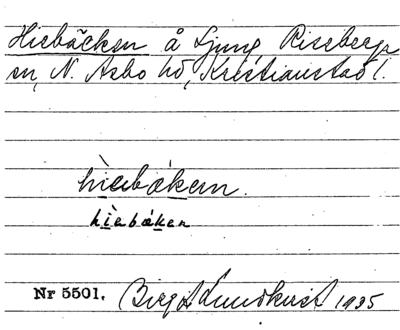 Hiebäcken å Ljung, Risseberga
sn, N. Asbo hd, Kristianstad l.
hìebäken.
hìebäken
Nr 5501. Birgit Lundkvist 1935